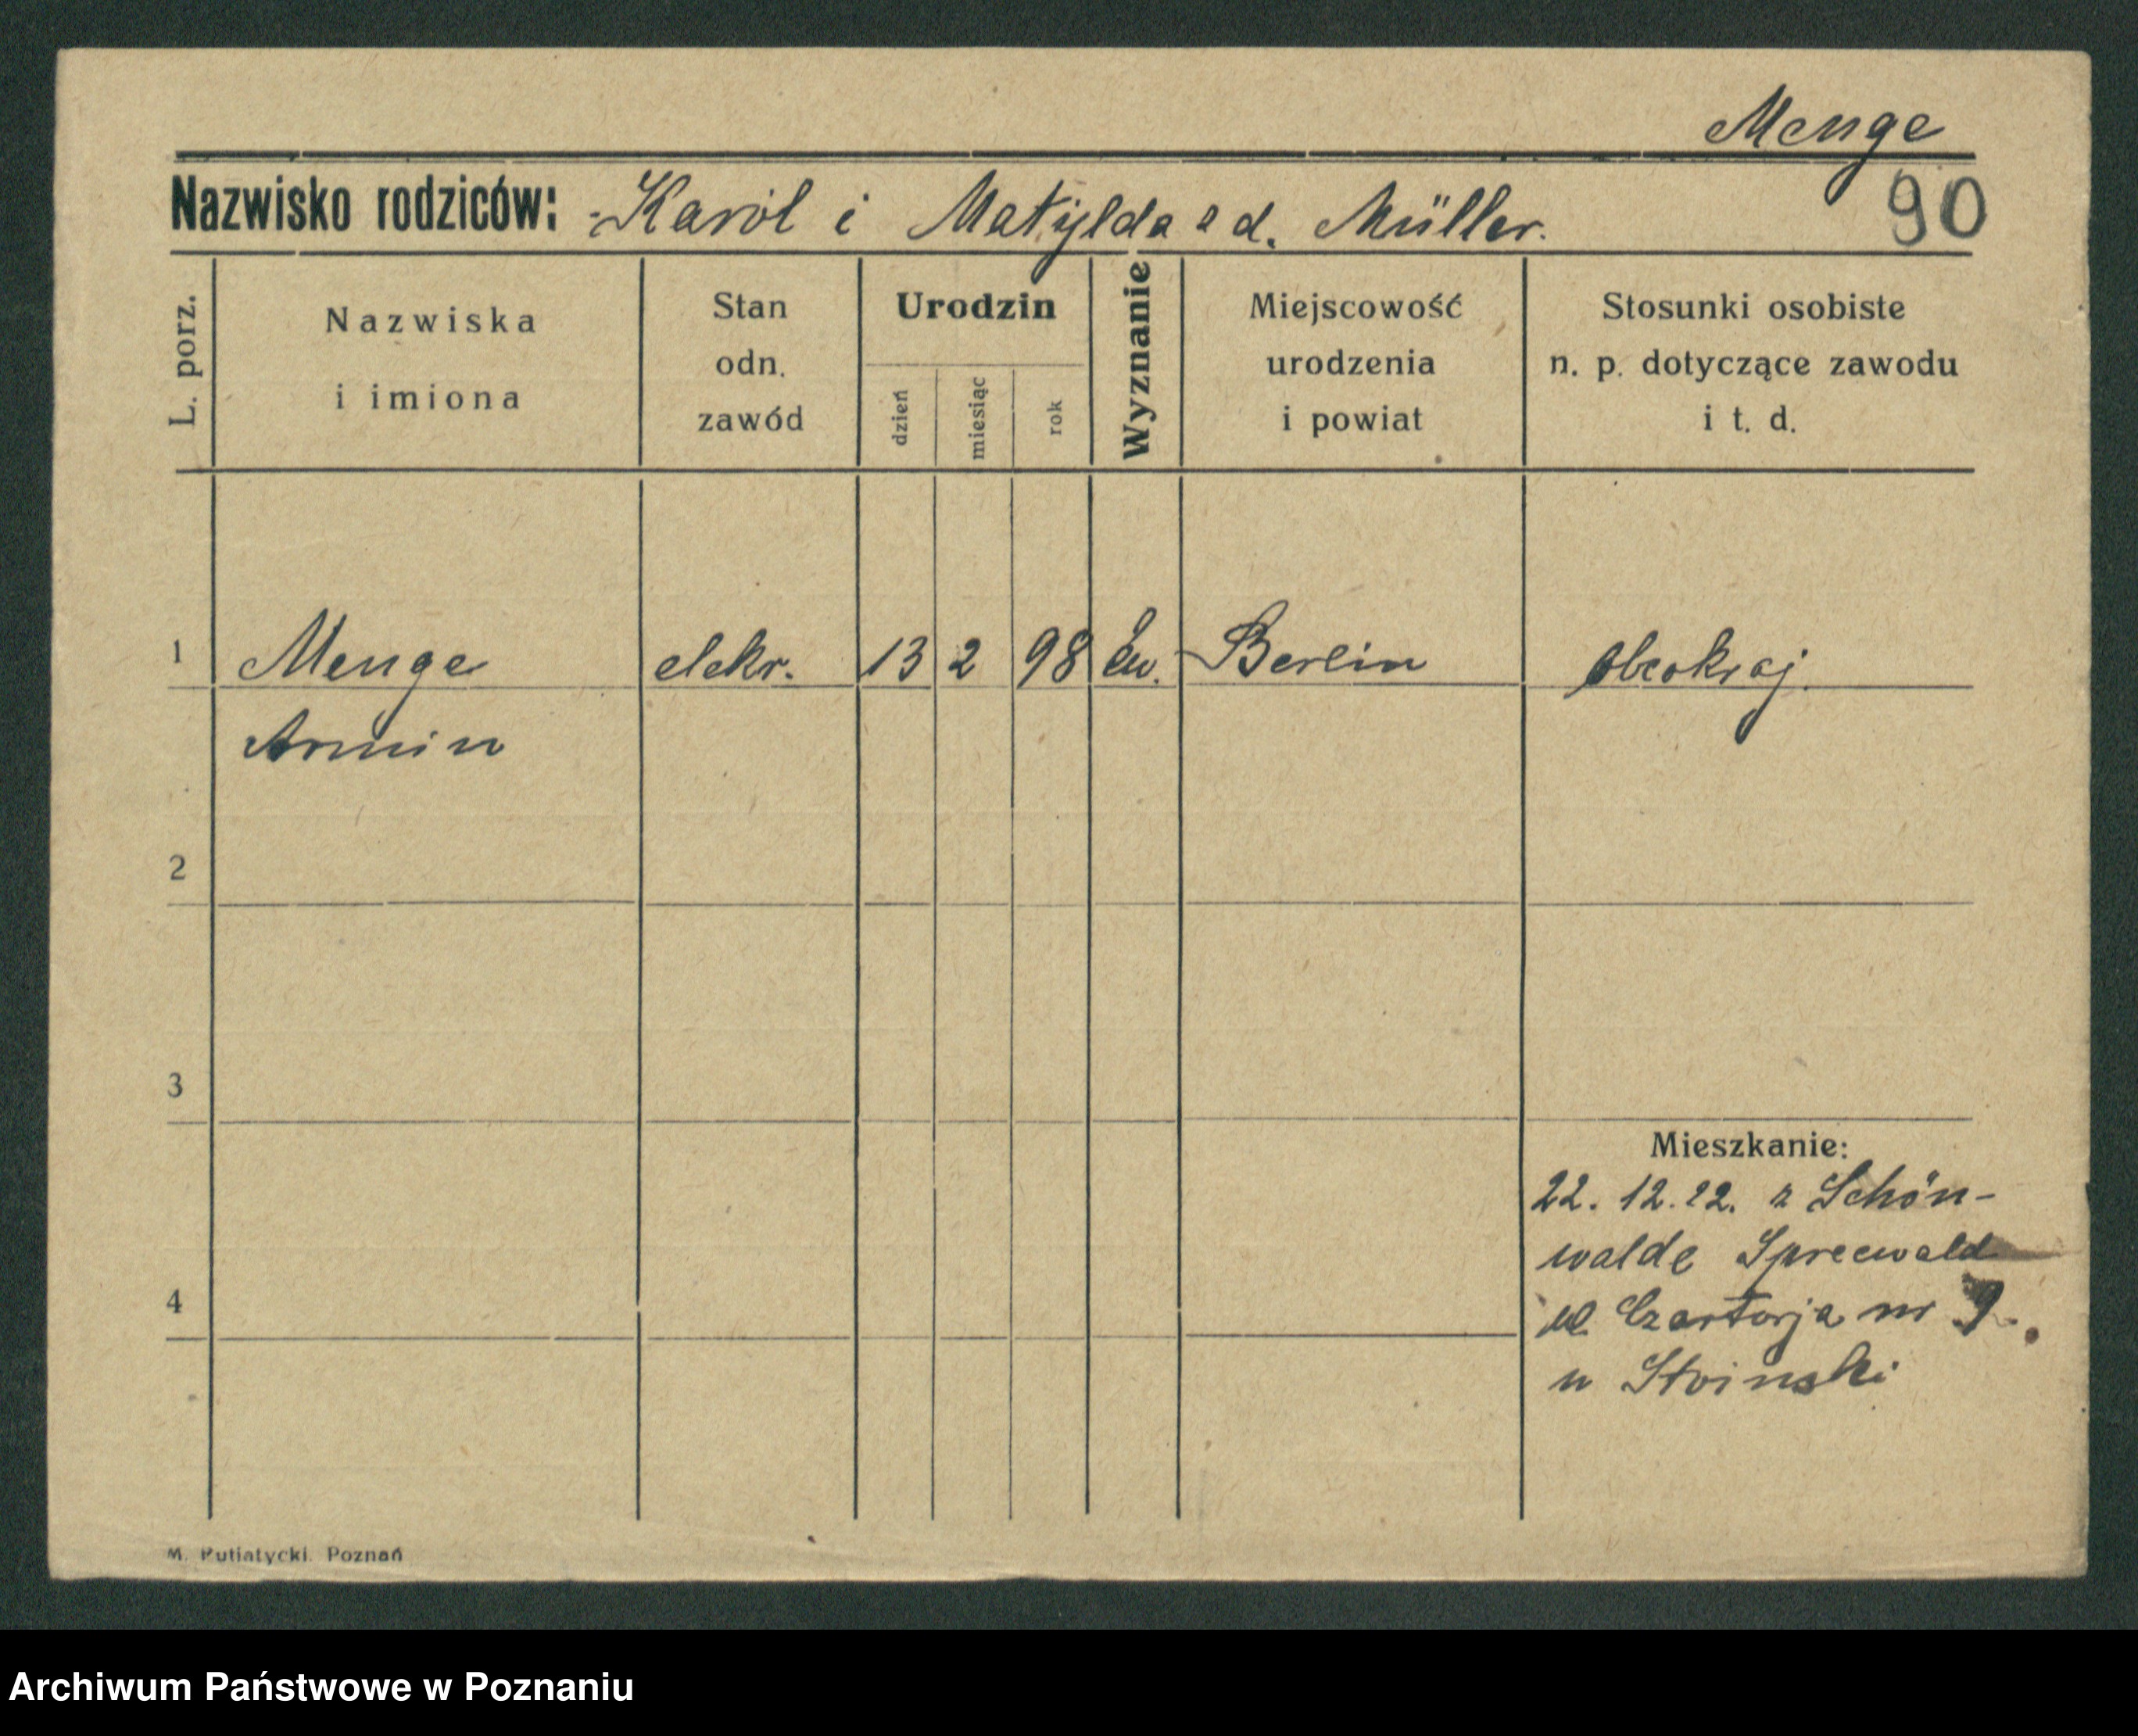 Menge
Nazwisko rodziców: Karól i Matylda z d. Müller.
90
L. porz.
Nazwiska
i imiona
Stan
odn.
zawód
Urodzin
dzień
miesiąc
rok
Wyznanie
Miejscowość
urodzenia
i powiat
Stosunki osobiste
n. p. dotyczące zawodu
i t. d.
1 Menge elekr. 13 2 98 Ew. Berlin obcokraj.
Armin
2
3
Mieszkanie:
22. 12. 22. z Schön-
walde Spreewald
4
ul. Czartorja nr 9.
u Stoinski
M. Putiatycki. Poznań
Archiwum Państwowe w Poznaniu